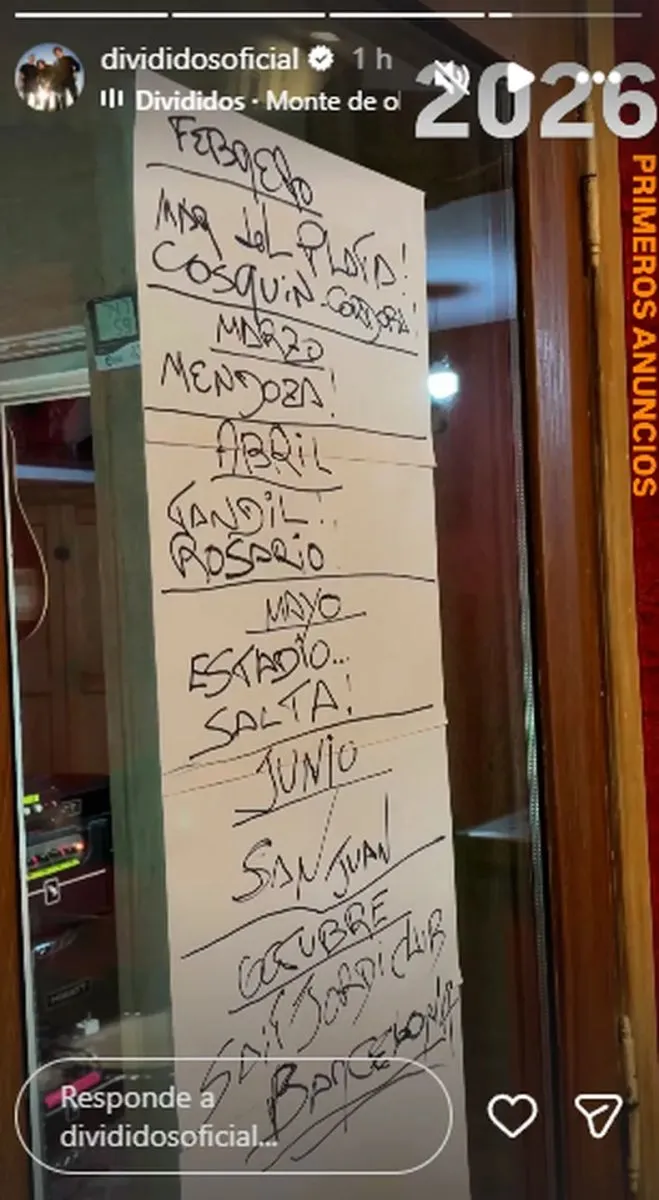 dividos​oficial 1 h
Divididos · Monte de o
2026
PRIMEROS ANUNCIOS
FEBRERO
MAR DEL PLATA!
COSQUIN - CORDOBA!
MARZO
MENDOZA!
ABRIL
TANDIL!
ROSARIO
MAYO
ESTADIO...
SALTA!
JUNIO
SAN JUAN
OCTUBRE
SANT JORDI CLUB
BARCELONA!!
Responde a
divididosoficial...